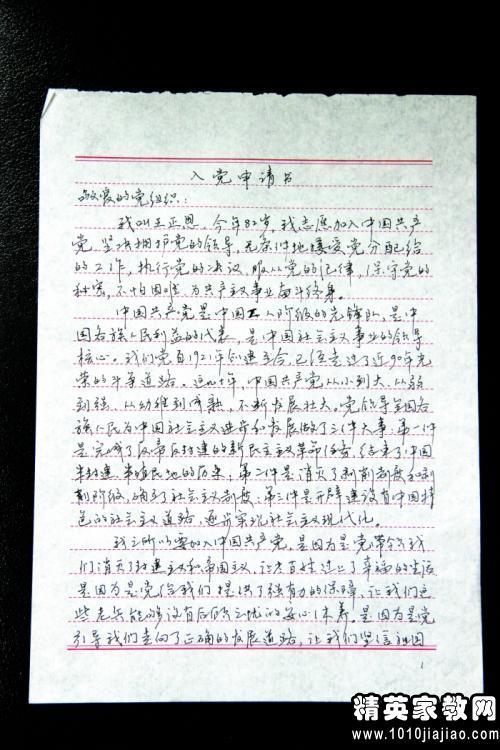 入党申请书
敬爱的党组织：
我叫王正恩，今年82岁，我志愿加入中国共产
党，坚决拥护党的领导，无条件地接受党分配给
的工作，执行党的决议，服从党的纪律，保守党的
秘密，不怕困难，为共产主义事业奋斗终身。
中国共产党是中国工人阶级的先锋队，是中
国各族人民利益的代表，是中国社会主义事业的领导
核心。我们党自1921年创建至今，已经走过了近90年光
荣的斗争道路。这几十年，中国共产党从小到大、从弱
到强、从幼稚到成熟，不断发展壮大。党领导全国各
族人民为中国社会主义进步和发展做了三件大事：第一件
是完成了反帝反封建的新民主主义革命任务，结束了中国
半封建、半殖民地的历史；第二件是消灭了剥削制度和剥
削阶级，确立了社会主义制度；第三件是开辟建设有中国特
色的社会主义道路，逐步实现社会主义现代化。
我之所以要加入中国共产党，是因为是党带领我
们消灭了封建主义和帝国主义，让老百姓过上了幸福的生活
是因为是党给我们提供了强有力的保障，让我们这
些老兵能够没有后顾之忧的安心休养。是因为是党
引导我们走向了正确的发展道路，让我们坚信祖国
1
精英家教网
www.1010jiajiao.com